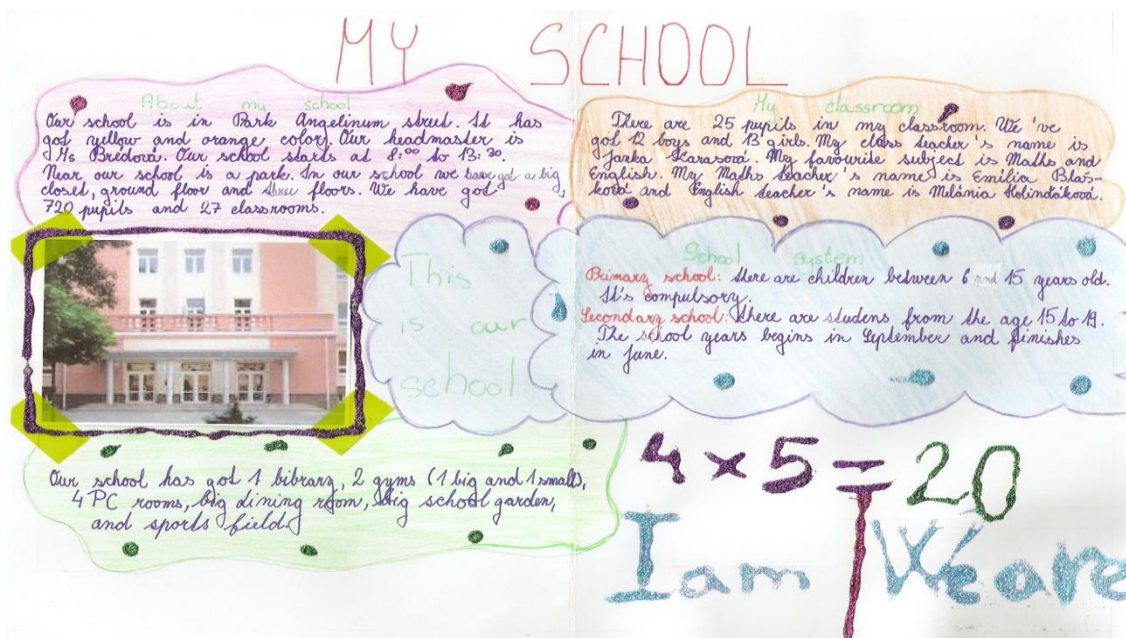 MY SCHOOL
About my school
Our school is in Park Angelinum street. It has
got yellow and orange color. Our headmaster is
Ms Bredová. Our school starts at 8:00 to 13:30.
Near our school is a park. In our school we have got a big
closet, ground floor and three floors. We have got
720 pupils and 27 classrooms.
My classroom
There are 25 pupils in my classroom. We 've
got 12 boys and 13 girls. My class teacher's name is
Janka Karasová. My favourite subject is Maths and
English. My Maths teacher's name is Emília Blaš-
ková and English teacher's name is Melánia Holindáková.
This
is our
school
School system
Primary school: there are children between 6 and 15 years old.
It's compulsory.
Secondary school: there are studens from the age 15 to 19.
The school years begins in September and finishes
in June.
Our school has got 1 bibrary, 2 gyms (1 big and 1 small),
4 PC rooms, big dining room, big school garden,
and sports field.
4 × 5 = 20
I am We are